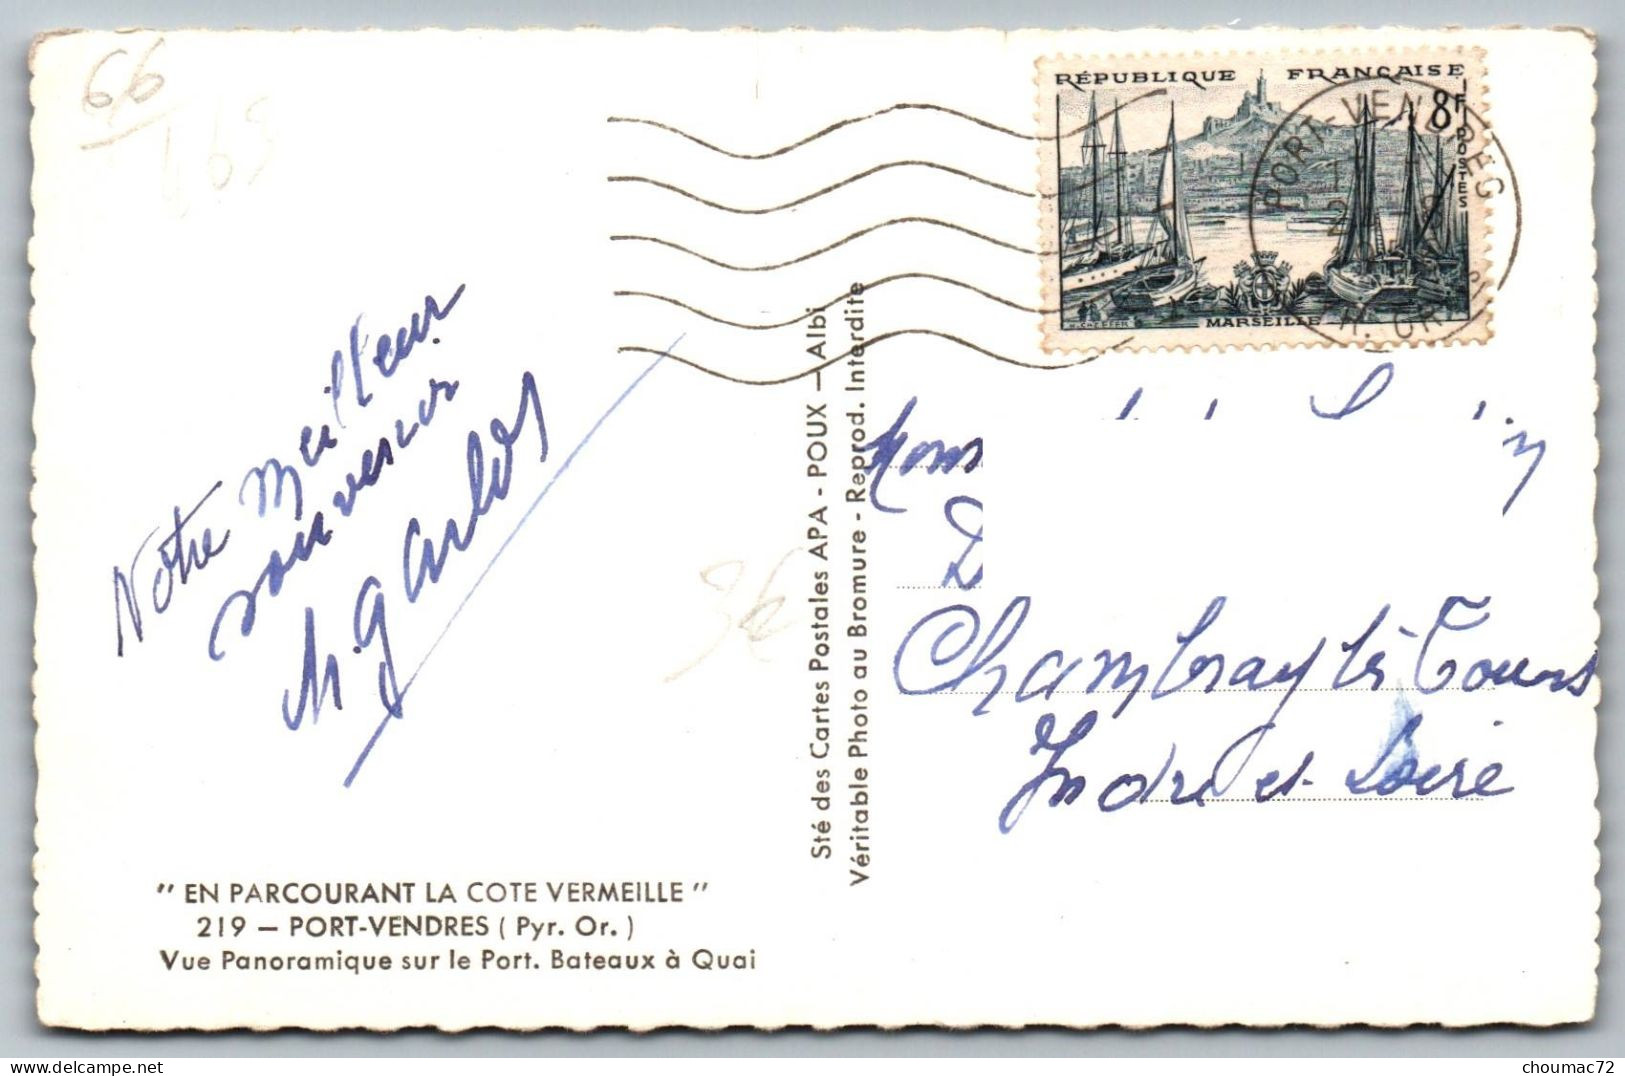 66
RÉPUBLIQUE FRANÇAISE
8F
POSTES
PORT-VENDRES
MARSEILLE
Notre Meilleur
souvenir
Sté des Cartes Postales APA - POUX — Albi
Véritable Photo au Bromure - Reprod. Interdite
Mons
D
Chambray lès Tours
Indre et Loire
" EN PARCOURANT LA COTE VERMEILLE "
219 — PORT-VENDRES ( Pyr. Or. )
Vue Panoramique sur le Port. Bateaux à Quai
choumac72